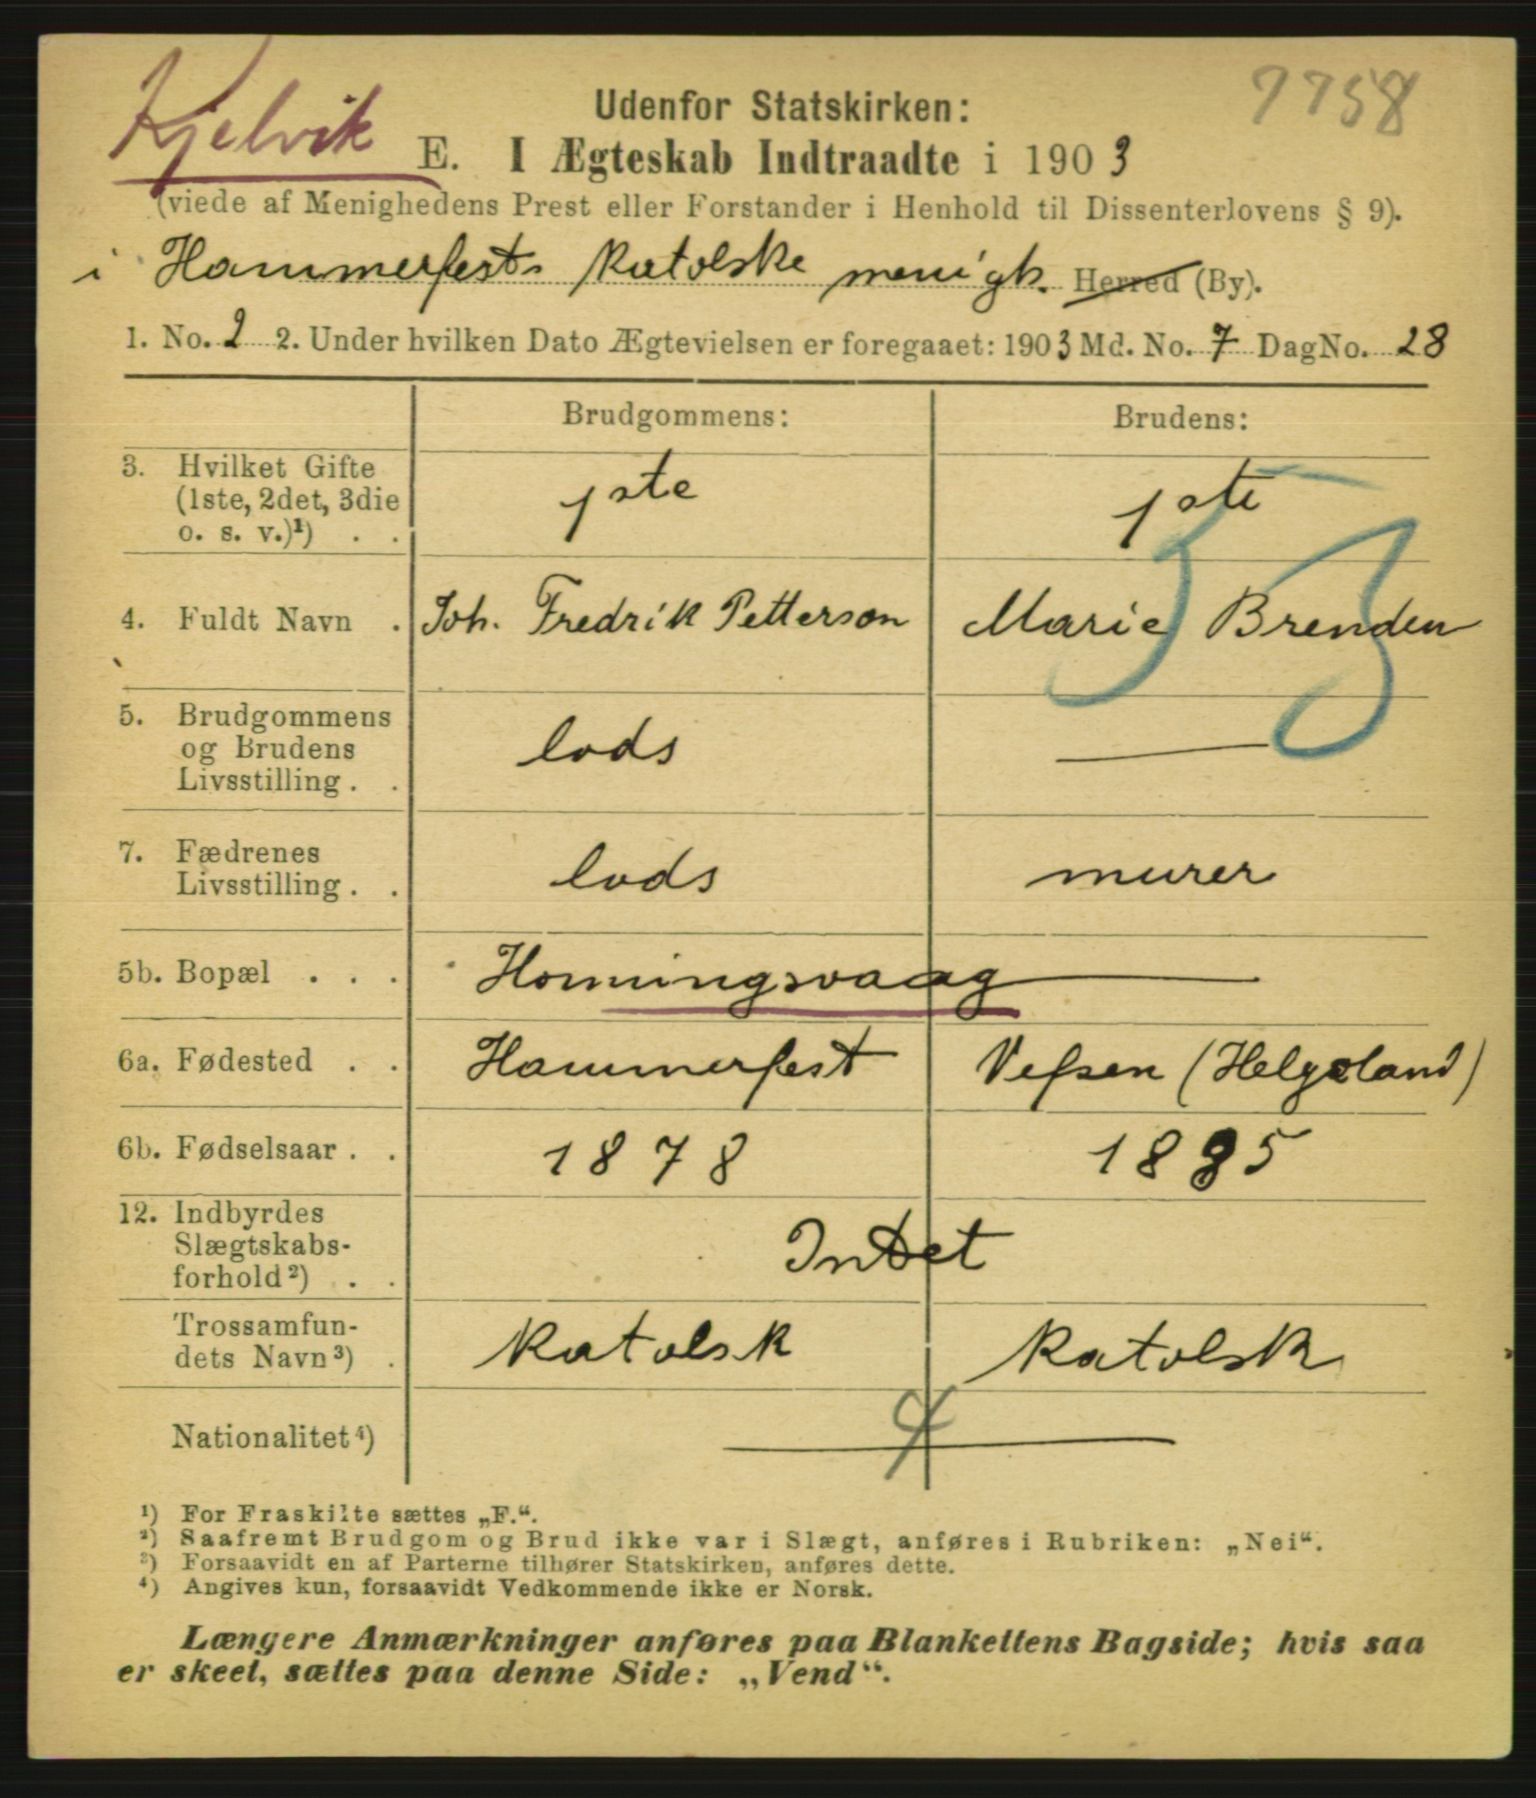 Kjelvik
7758
Udenfor Statskirken:
E. I Ægteskab Indtraadte i 1903
(viede af Menighedens Prest eller Forstander i Henhold til Dissenterlovens § 9).
i Hammerfests katolske menigh. Herred (By).
1. No. 2 2. Under hvilken Dato Ægtevielsen er foregaaet: 1903 Md. No. 7 Dag No. 28
Brudgommens: Brudens:
3. Hvilket Gifte (1ste, 2det, 3die o. s. v.)¹) . . 1ste 1ste
4. Fuldt Navn . Joh. Fredrik Petterson Marie Brenden
53
5. Brudgommens og Brudens Livsstilling . . lods —
7. Fædrenes Livsstilling . . lods murer
5b. Bopæl . . . Honningsvaag —
6a. Fødested . . Hammerfest Vefsen (Helgeland)
6b. Fødselsaar . . 1878 1885
12. Indbyrdes Slægtskabsforhold²) . . Intet
Trossamfundets Navn³) . katolsk katolsk
Nationalitet⁴) —
¹) For Fraskilte sættes „F.“.
²) Saafremt Brudgom og Brud ikke var i Slægt, anføres i Rubriken: „Nei“.
³) Forsaavidt en af Parterne tilhører Statskirken, anføres dette.
⁴) Angives kun, forsaavidt Vedkommende ikke er Norsk.
Længere Anmærkninger anføres paa Blankettens Bagside; hvis saa
er skeet, sættes paa denne Side: „Vend“.